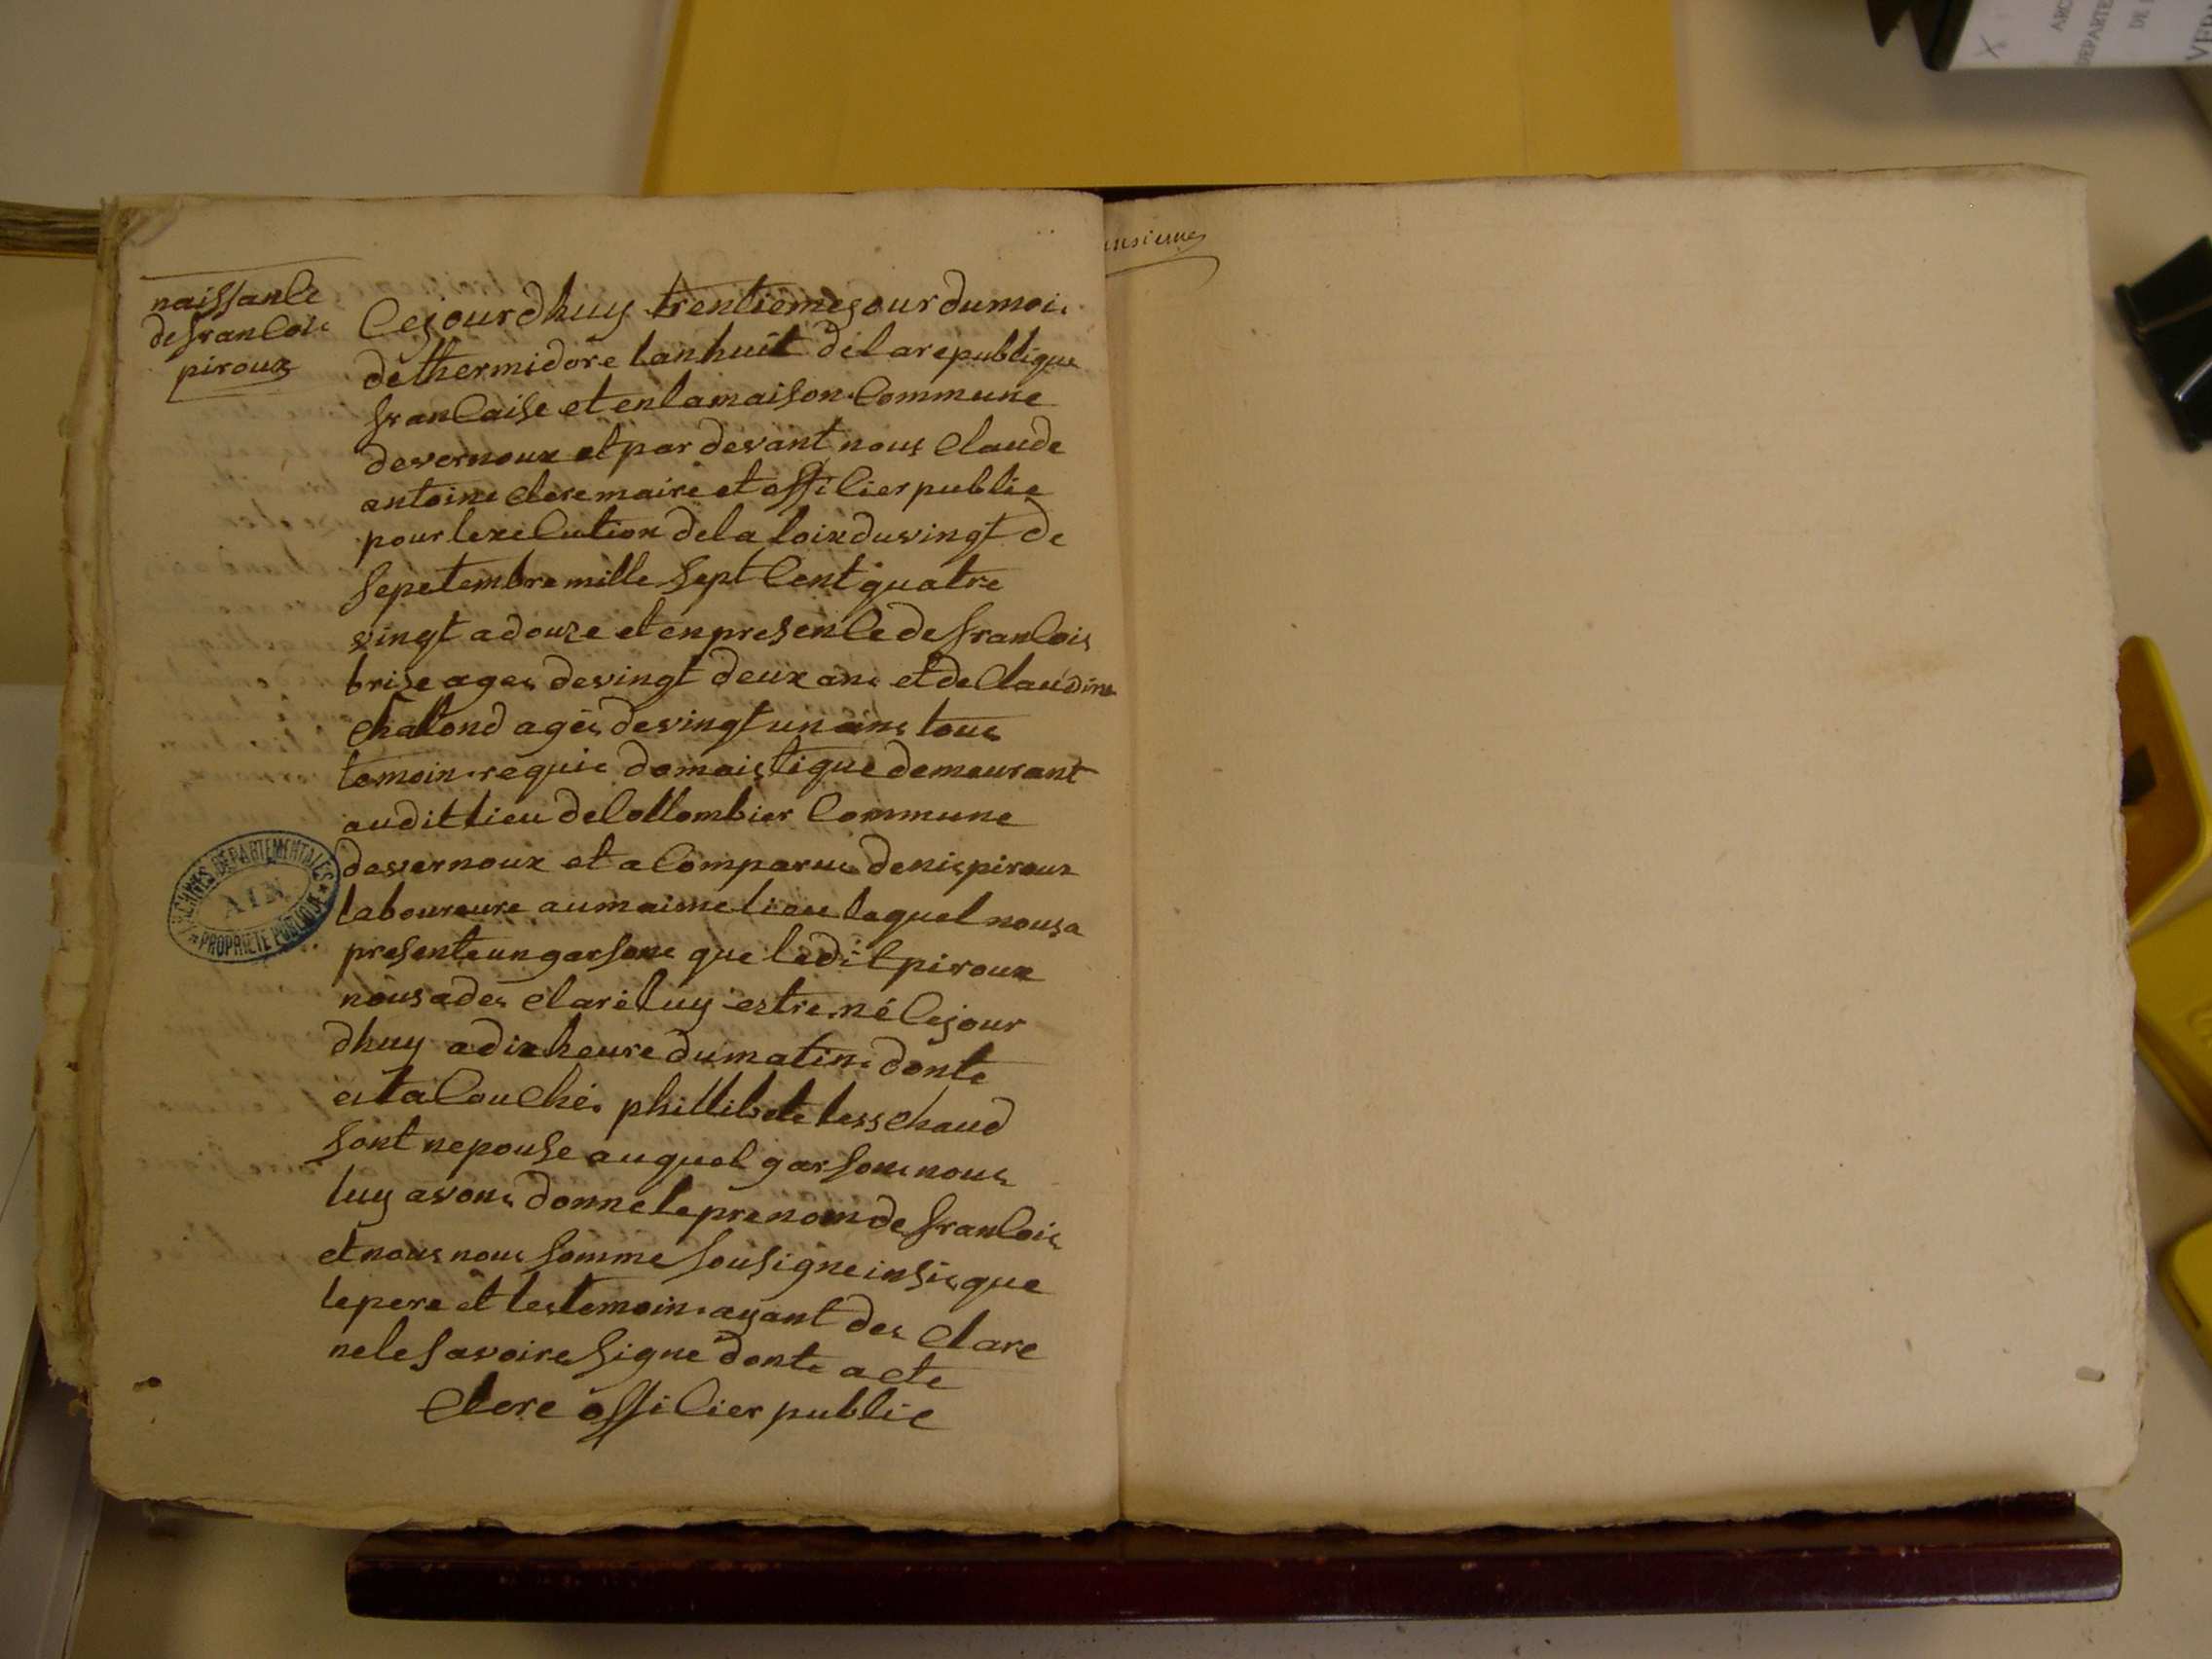 naissance
de francois
piroux
Cejourdhuy trentieme jour du mois
de thermidore lan huit de la republique
francaise et en la maison Commune
de vernoux et par devant nous Claude
antoine Clere maire et officier public
pour lexecution de la loix du vingt de
sepetembre mille sept Cent quatre
vingt a douze et en presence de francois
brise ages de vingt deux ans et de Claudine
Challond ages de vingt un ans tous
temoins requis domaistique demeurant
audit lieu de Collombier Commune
de vernoux et a Comparus denis piroux
laboureure au maime lieu lequel nous a
presente un garsons que ledit piroux
nous a des Claré luy estre né Cejour
dhuy a dix heure du matins donte
est a Couchés phillibete lesschaud
sont nepouse auquel garsons nous
luy avons donne le prenom de francois
et nous nous somme sousigne insis que
le pere et les temoins ayant des Clare
ne le savoire signe donte acte
Clere officier public
ARCHIVES DEPARTEMENTALES
AIN
PROPRIETE PUBLIQUE
DE